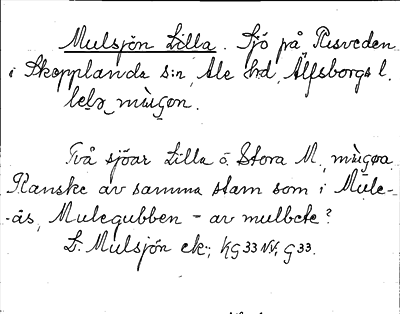 Mulsjön Lilla. Sjö på Risveden
i Skepplanda s:n, Ale hrd, Älfsborgs l.
lela mùgon.
Två sjöar Lilla o. Stora M, mùgoa
Kanske av samma stam som i Mule-
-ås, Mulegubben - av mulbete?
L. Mulsjön ek; KG33NV, G33.